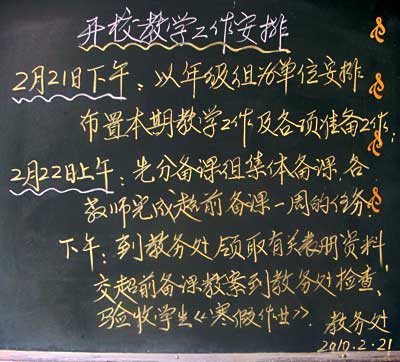 开校教学工作安排
2月21日下午：以年级组为单位安排
布置本期教学工作及各项准备工作；
2月22日上午：先分备课组集体备课，各
教师完成超前备课一周的任务。
下午：到教务处领取有关表册资料，
交超前备课教案到教务处检查、
验收学生《寒假作业》.
教务处
2010.2.21